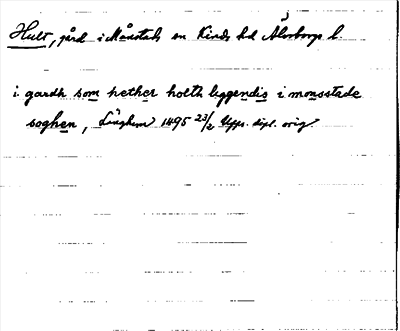 Hult, gård i Månstads sn Kinds hd Älvsborgs l.
i gardh som hether holth liggendis i monsstade
soghen, Länghem 1495 23/2 Upps. dipl. orig.